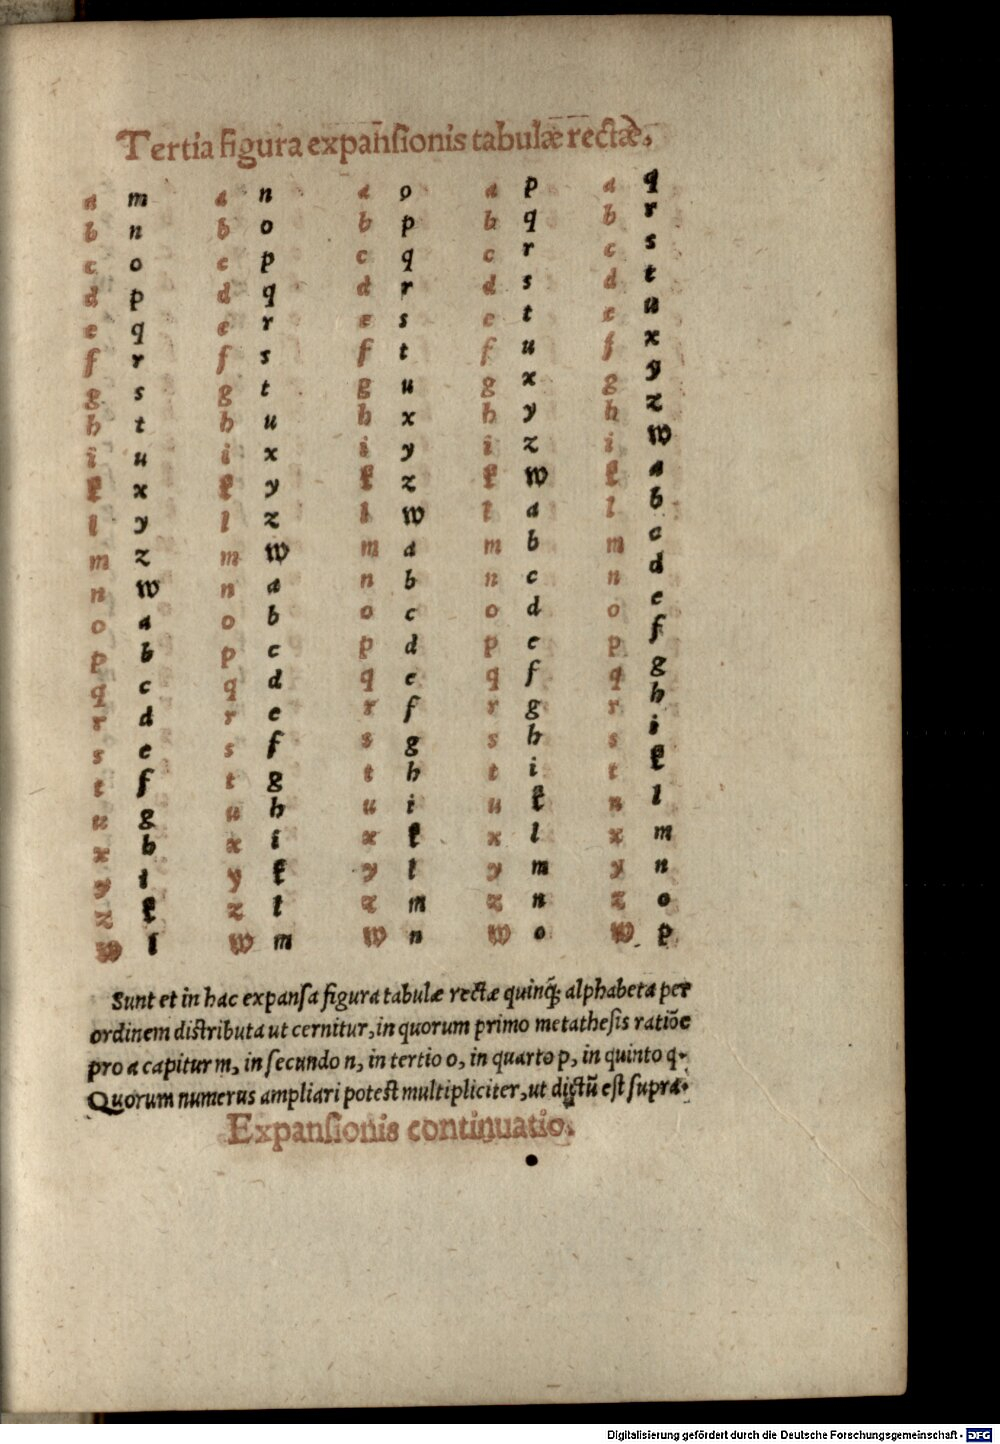 Tertia figura expansionis tabulæ rectæ.
a m a n a o a p a q
b n b o b p b q b r
c o c p c q c r c s
d p d q d r d s d t
e q e r e s e t e u
f r f s f t f u f x
g s g t g u g x g y
h t h u h x h y h z
i u i x i y i z i w
k x k y k z k w k a
l y l z l w l a l b
m z m w m a m b m c
n w n a n b n c n d
o a o b o c o d o e
p b p c p d p e p f
q c q d q e q f q g
r d r e r f r g r h
s e s f s g s h s i
t f t g t h t i t k
u g u h u i u k n l
x h x i x k x l x m
y i y k y l y m y n
z k z l z m z n z o
w l w m w n w o w p
Sunt et in hac expansa figura tabulæ rectæ quinq; alphabeta per
ordinem distributa ut cernitur, in quorum primo metathesis ratiōe
pro a capitur m, in secundo n, in tertio o, in quarto p, in quinto q.
Quorum numerus ampliari potest multipliciter, ut dictū est supra.
Expansionis continuatio.
Digitalisierung gefördert durch die Deutsche Forschungsgemeinschaft - DFG